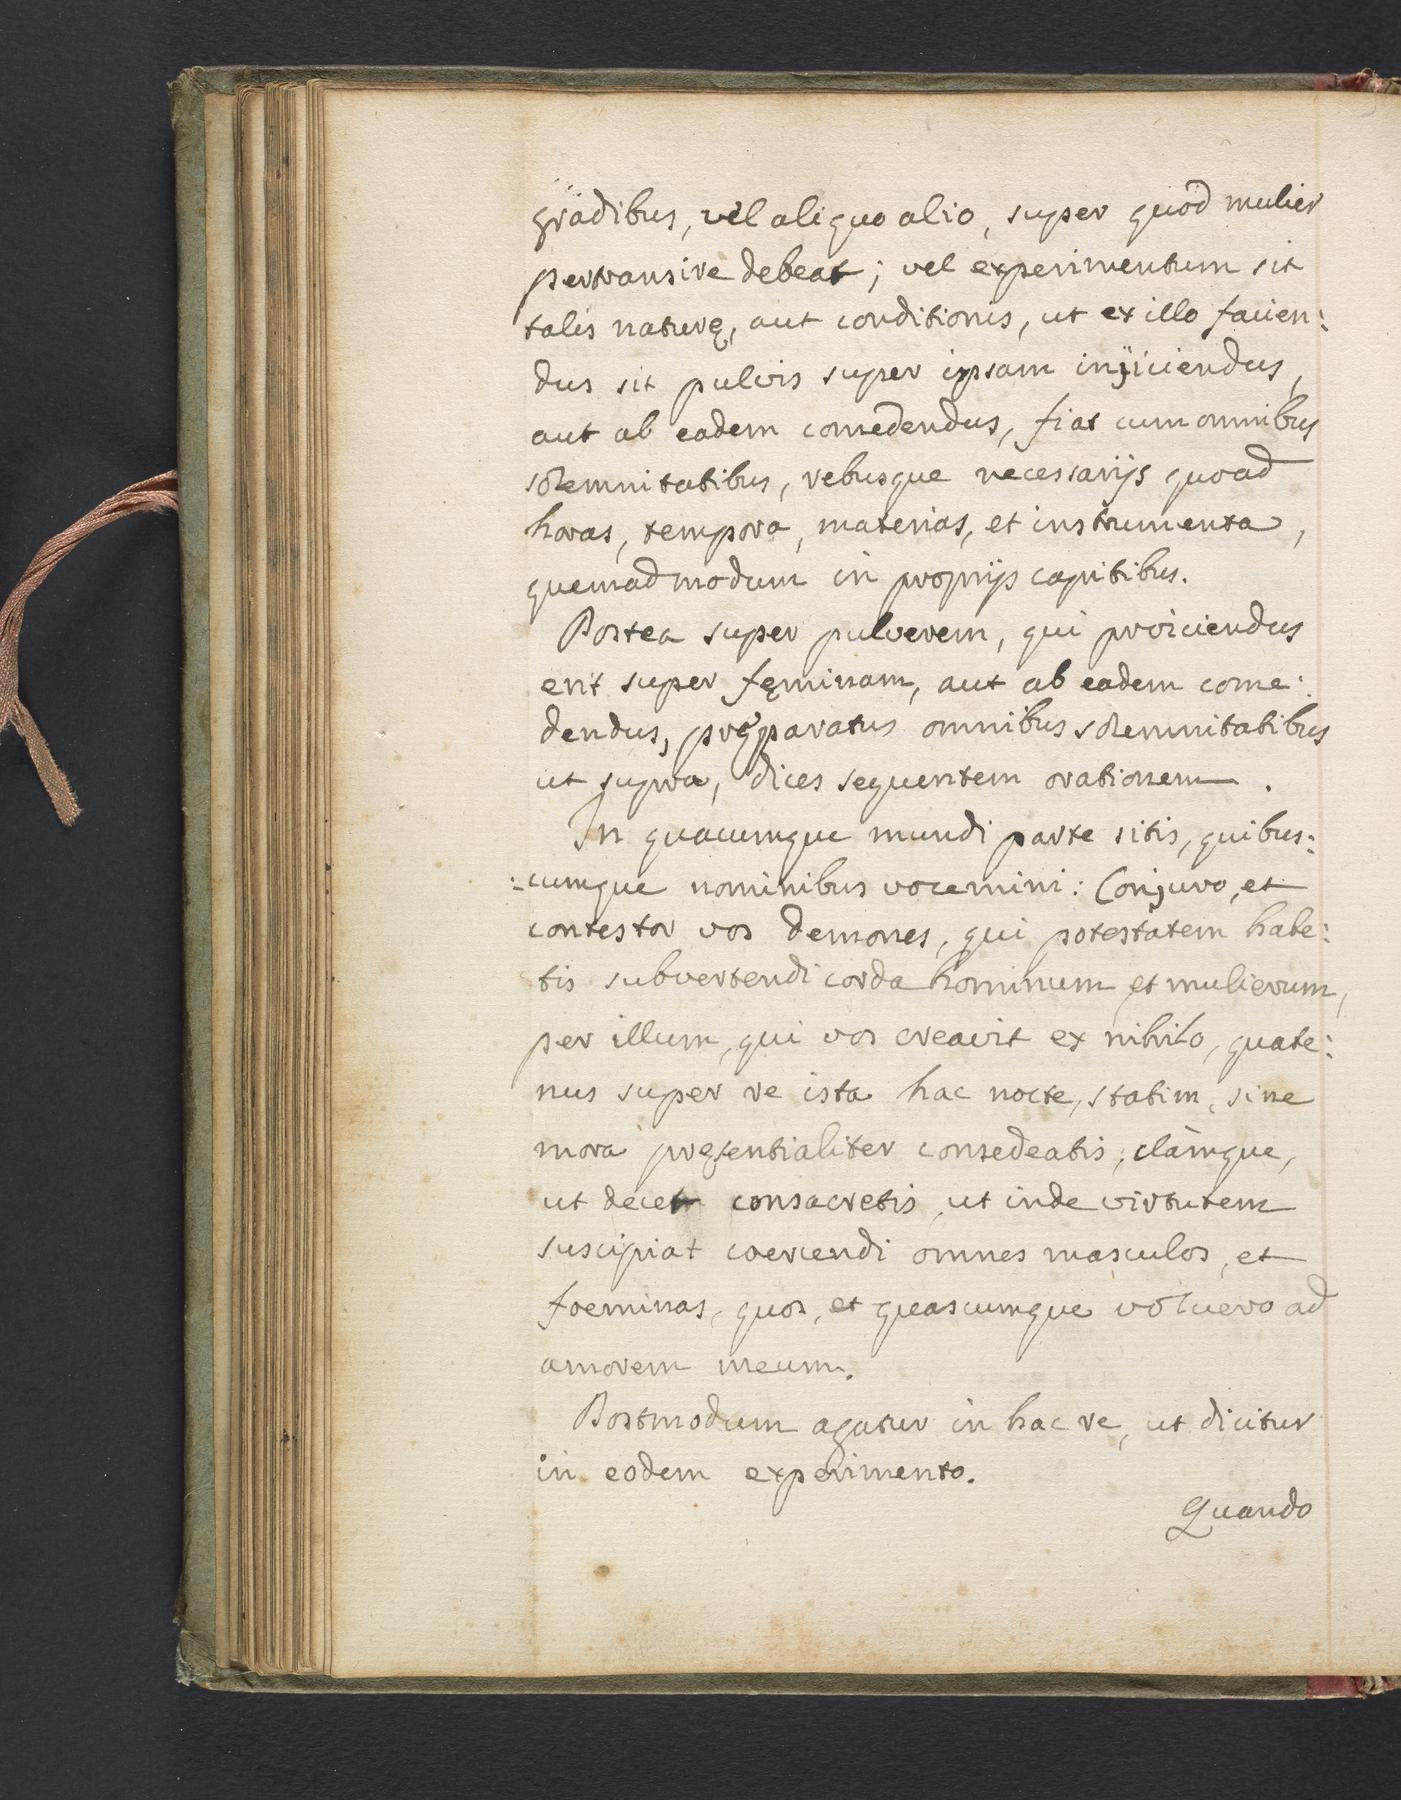 gradibus, vel aliquo alio, super quod mulier
pertransire debeat; vel experimentum sit
talis naturę, aut conditionis, ut ex illo facien:
dus sit pulvis super ipsam injiciendus,
aut ab eadem comedendus, fiat cum omnibus
solemnitatibus, rebusque necessarijs quoad
horas, tempora, materias, et instrumenta,
quemadmodum in proprijs capitibus.
Postea super pulverem, qui proiciendus
erit super fęminam, aut ab eadem come:
dendus, pręparatus omnibus solemnitatibus
ut supra, dices sequentem orationem.
In quacumque mundi parte sitis, quibus:
:cumque nominibus vocemini: Conjuro, et
contestor vos demones, qui potestatem habe:
tis subvertendi corda hominum et mulierum,
per illum, qui vos creavit ex nihilo, quate:
nus super re ista hac nocte, statim, sine
mora pręsentialiter consedeatis, clàmque,
ut decet consacretis, ut inde virtutem
suscipiat coercendi omnes masculos, et
foeminas, quos, et quascumque voluero ad
amorem meum.
Postmodum agatur in hac re, ut dicitur
in eodem experimento.
Quando